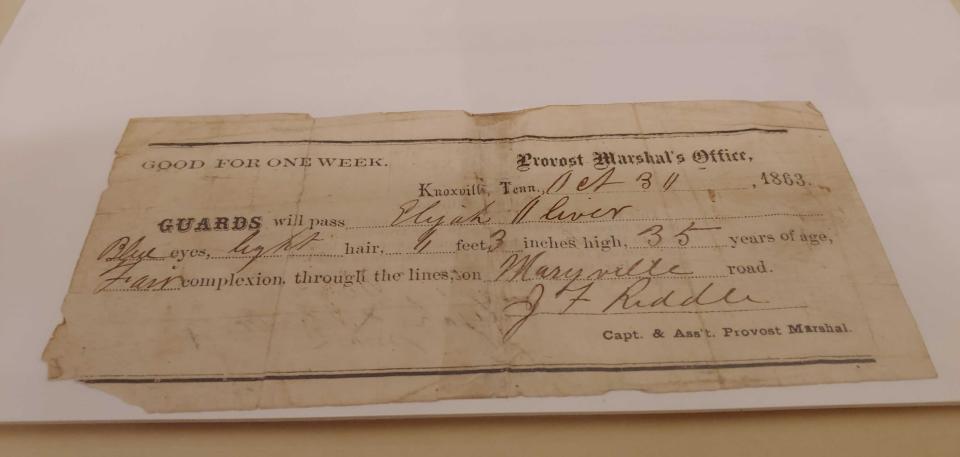 GOOD FOR ONE WEEK.
Provost Marshal's Office,
Knoxville, Tenn., Oct 30, 1863.
GUARDS will pass Elijah Oliver
Blue eyes, light hair, feet, 3 inches high, 35 years of age,
Fair complexion, through the lines, on Maryville road.
J F Riddle
Capt. & Ass't. Provost Marshal.